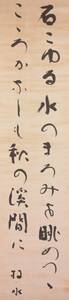 石こゆる水のまろみを眺めつつ
こころかなしも秋の渓間に 牧水